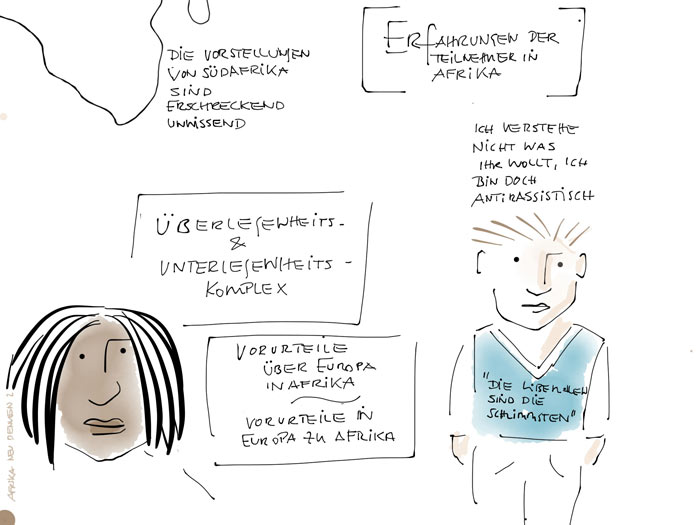 DIE VORSTELLUNGEN
VON SÜDAFRIKA
SIND
ERSCHRECKEND
UNWISSEND
ERFAHRUNGEN DER
TEILNEHMER IN
AFRIKA
ICH VERSTEHE
NICHT WAS
IHR WOLLT, ICH
BIN DOCH
ANTIRASSISTISCH
ÜBERLEGENHEITS-
&
UNTERLEGENHEITS-
KOMPLEX
VORURTEILE
ÜBER EUROPA
IN AFRIKA
VORURTEILE IN
EUROPA ZU AFRIKA
"DIE LIBERALEN
SIND DIE
SCHLIMMSTEN"
AFRIKA NEU DENKEN 2